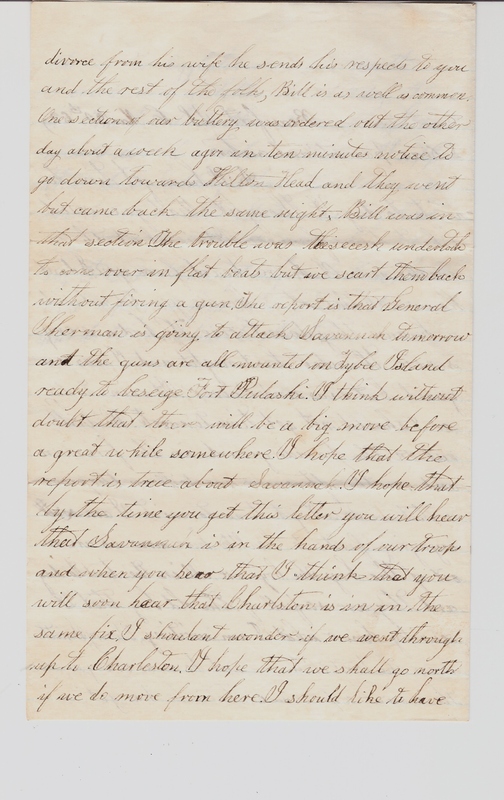 divorce from his wife he sends his respects to you
and the rest of the folk, Bill is as well as common.
One section of our battery was ordered out the other
day about a week agor in ten minutes notice to
go down towards Hilton Head and they went
but came back the same night. Bill was in
that section The trouble was the secesh undertook
to come over in flat boats but we scart them back
without firing a gun. The report is that General
Sherman is going to attack Savannah tomorrow
and the guns are all mounted on Tybie Island
ready to beseige Fort Pulaski. I think without
doubt that there will be a big move before
a great while somewhere. I hope that the
report is true about Savannah. I hope that
by the time you get this letter you will hear
that Savannah is in the hands of our troops
and when you hear that I think that you
will soon hear that Charlston is in in the
same fix. I shouldant wonder if we went through
up to Charleston. I hope that we shall go north
if we do move from here. I should like to have